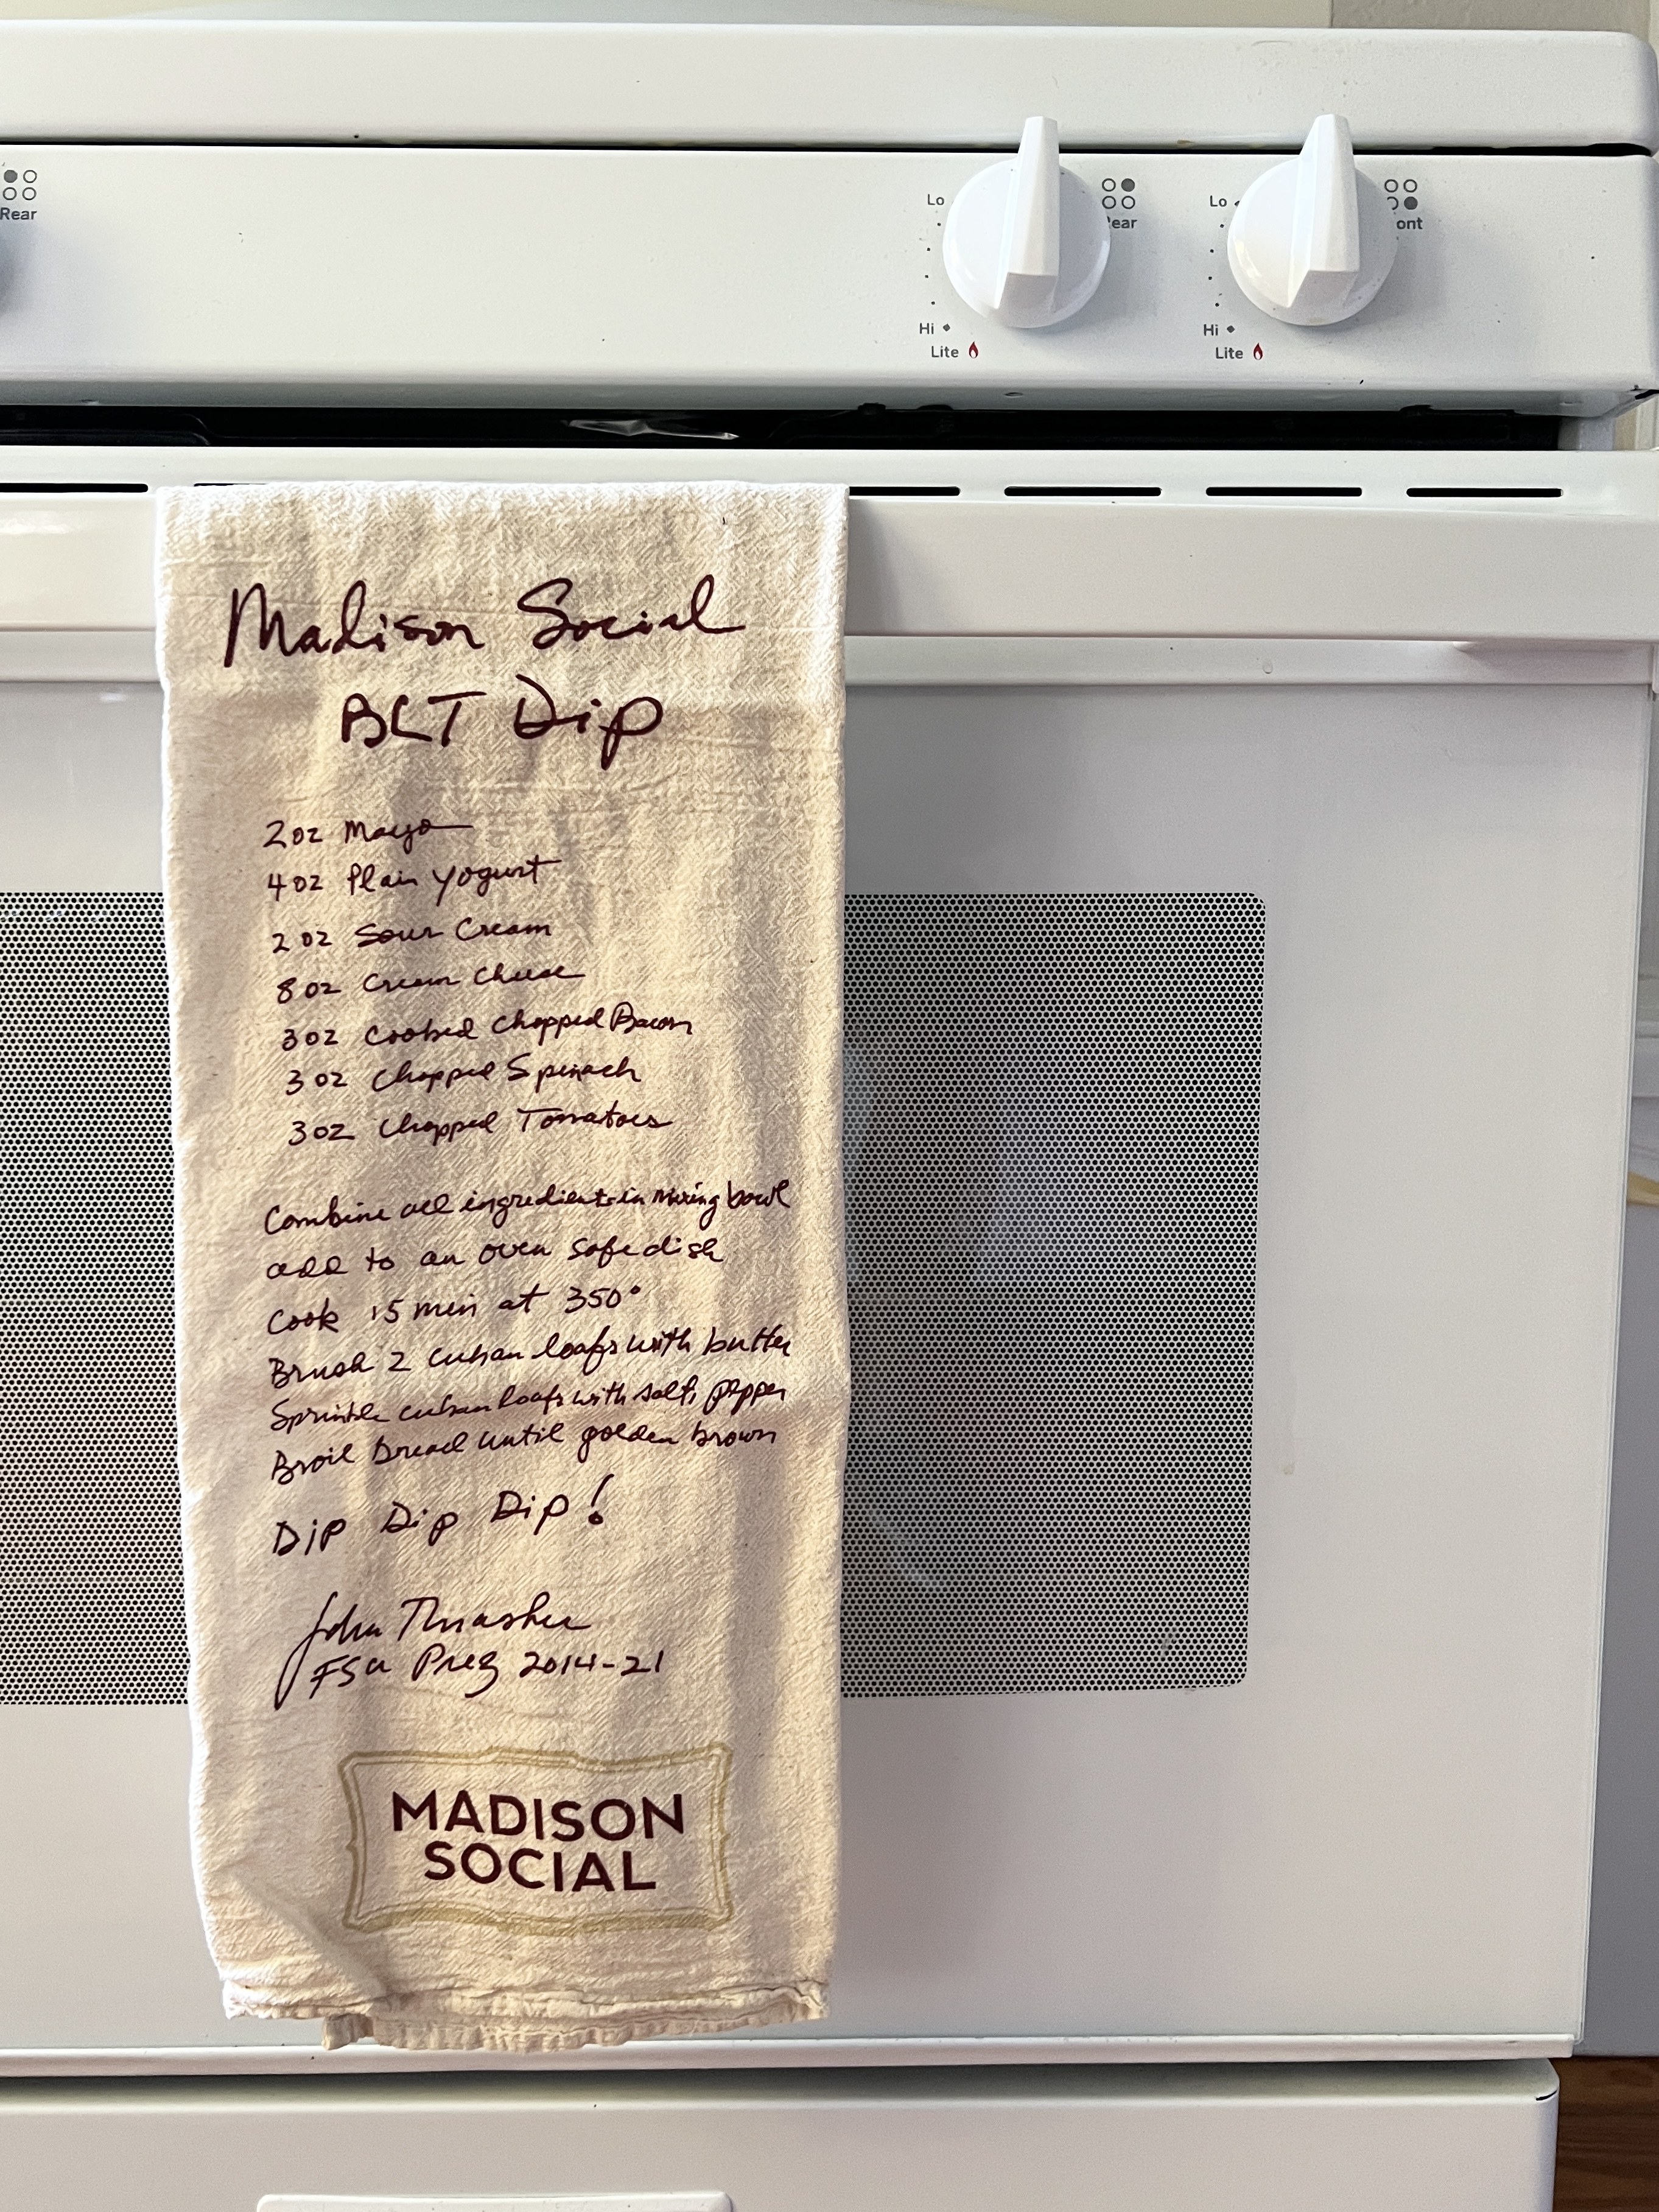 Rear
Lo
Hi
Lite
ear
Lo
Hi
Lite
ont
Madison Social
BLT Dip
2oz Mayo
4oz Plain Yogurt
2oz Sour Cream
8oz Cream Cheese
3oz Cooked Chopped Bacon
3oz Chopped Spinach
3oz Chopped Tomatoes
Combine all ingredients in mixing bowl
add to an oven safe dish
Cook 15 min at 350°
Brush 2 cuban loafs with butter
Sprinkle cuban loafs with salt, pepper
Broil bread until golden brown
Dip Dip Dip!
John Thrasher
FSU Prez 2014-21
MADISON
SOCIAL